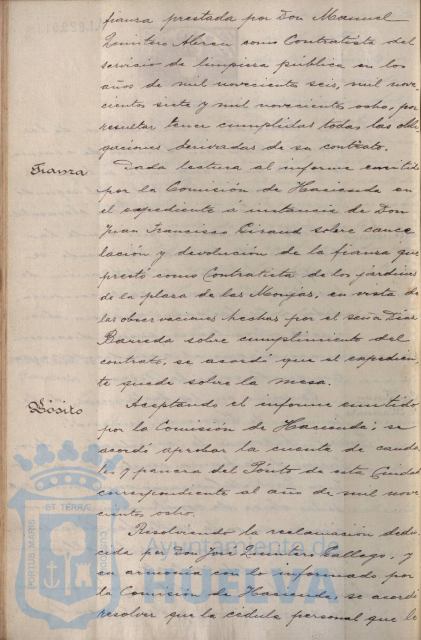 fianza prestada por Don Manuel
Quintero Meren como Contratista del
servicio de limpieza pública en los
años de mil novecientos seis, mil nove-
cientos siete y mil novecientos ocho, por
resultar tener cumplidas todas las obli-
gaciones derivadas de su contrato.
Fianza
Dada lectura al informe emitido
por la Comisión de Hacienda en
el expediente á instancia de Don
Juan Francisco Giraud sobre cance-
lación y devolución de la fianza que
prestó como Contratista de los jardines
de la plaza de las Monjas, en vista de
las observaciones hechas por el señor Diaz
Barreda sobre cumplimiento del
contrato, se acordó que el expedien-
te quede sobre la mesa.
Pósito
Aceptando el informe emitido
por la Comisión de Hacienda; se
acordó aprobar la cuenta de cauda-
les y panera del Pósito de esta Ciudad
correspondiente al año de mil nove-
cientos ocho.
Resolviendo la reclamación dedu-
cida por Don José Quintero Gallego, y
en armonía con lo informado por
la Comisión de Hacienda, se acordó
resolver que la cédula personal que le
PORTUS MARIS
ET TERRAE
CUSTODIA
Ayuntamiento de
HUELVA